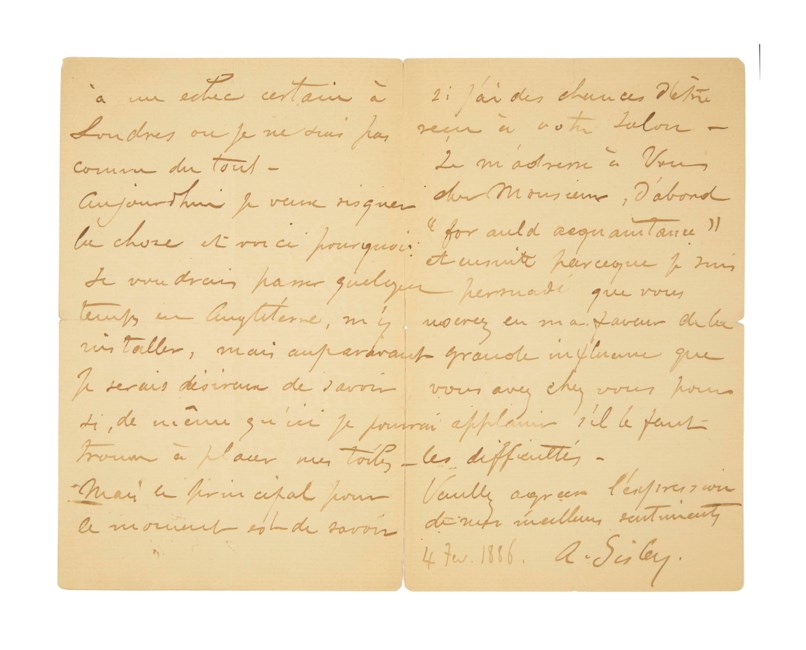 à un echec certain à
Londres ou je ne suis pas
connu du tout -
Aujourd'hui je veux risquer
la chose et voici pourquoi:
Je voudrais passer quelque
temps en Angleterre, m'y
installer, mais auparavant
Je serais désireux de savoir
si, de même qu'ici je pourrai
trouver à placer mes toiles -
Mais le principal pour
le moment est de savoir
si j'ai des chances d'être
reçu à votre Salon -
Je m'adresse à Vous
cher Monsieur, d'abord
"for auld acquaintance"
et ensuite parceque je suis
persuadé que vous
userez en ma faveur de la
grande influence que
vous avez chez vous pour
applanir s'il le faut
les difficultés -
Veuillez agréer l'expression
de mes meilleurs sentiments
4 Fev. 1886. A. Sisley.